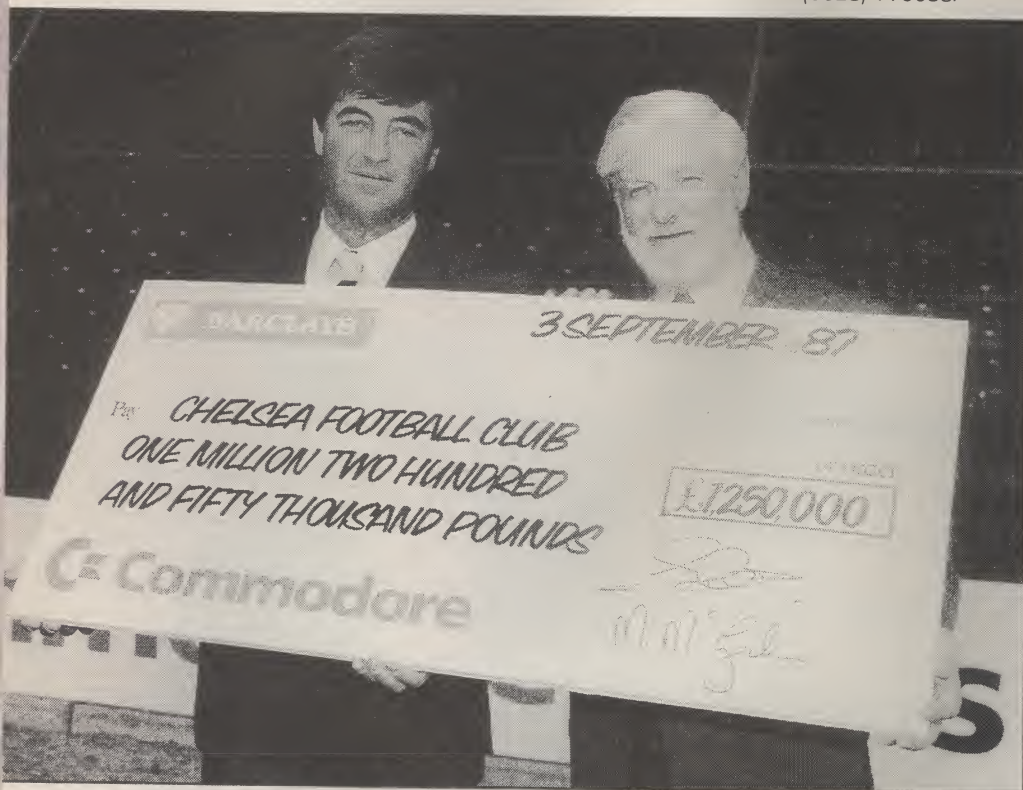 BARCLAYS
3 SEPTEMBER 87
Pay CHELSEA FOOTBALL CLUB
ONE MILLION TWO HUNDRED
AND FIFTY THOUSAND POUNDS
£1,250,000
C Commodore
S